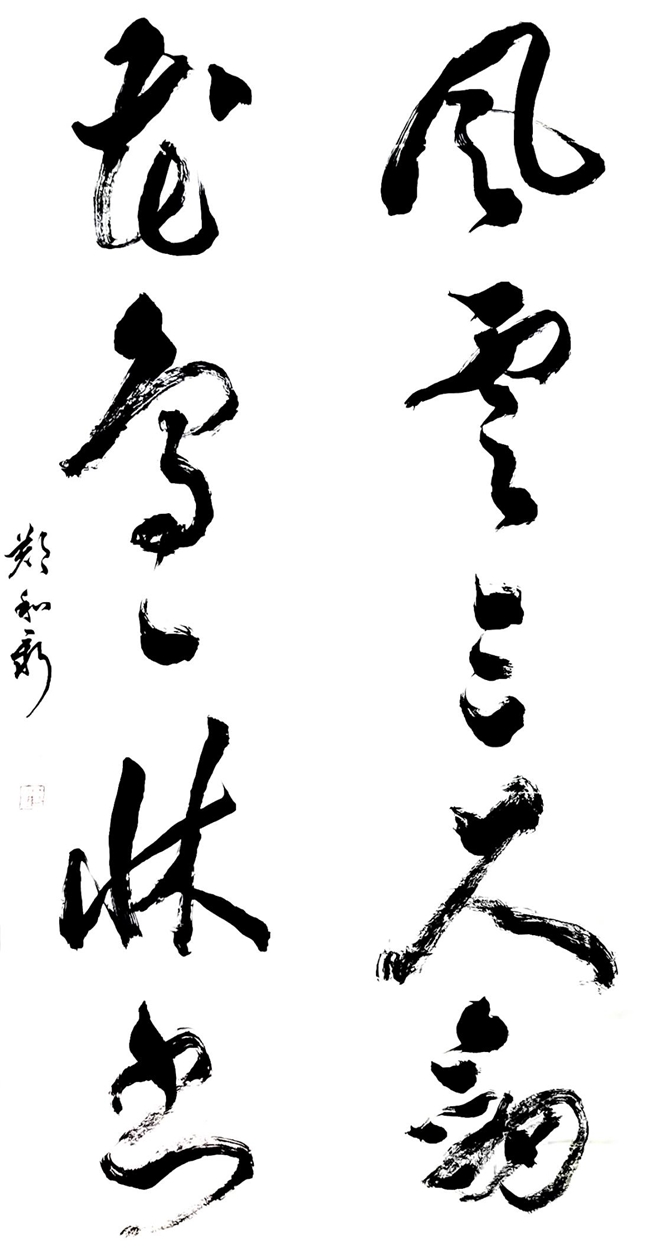 風雲三尺劍
花鳥一牀書
鄭和新